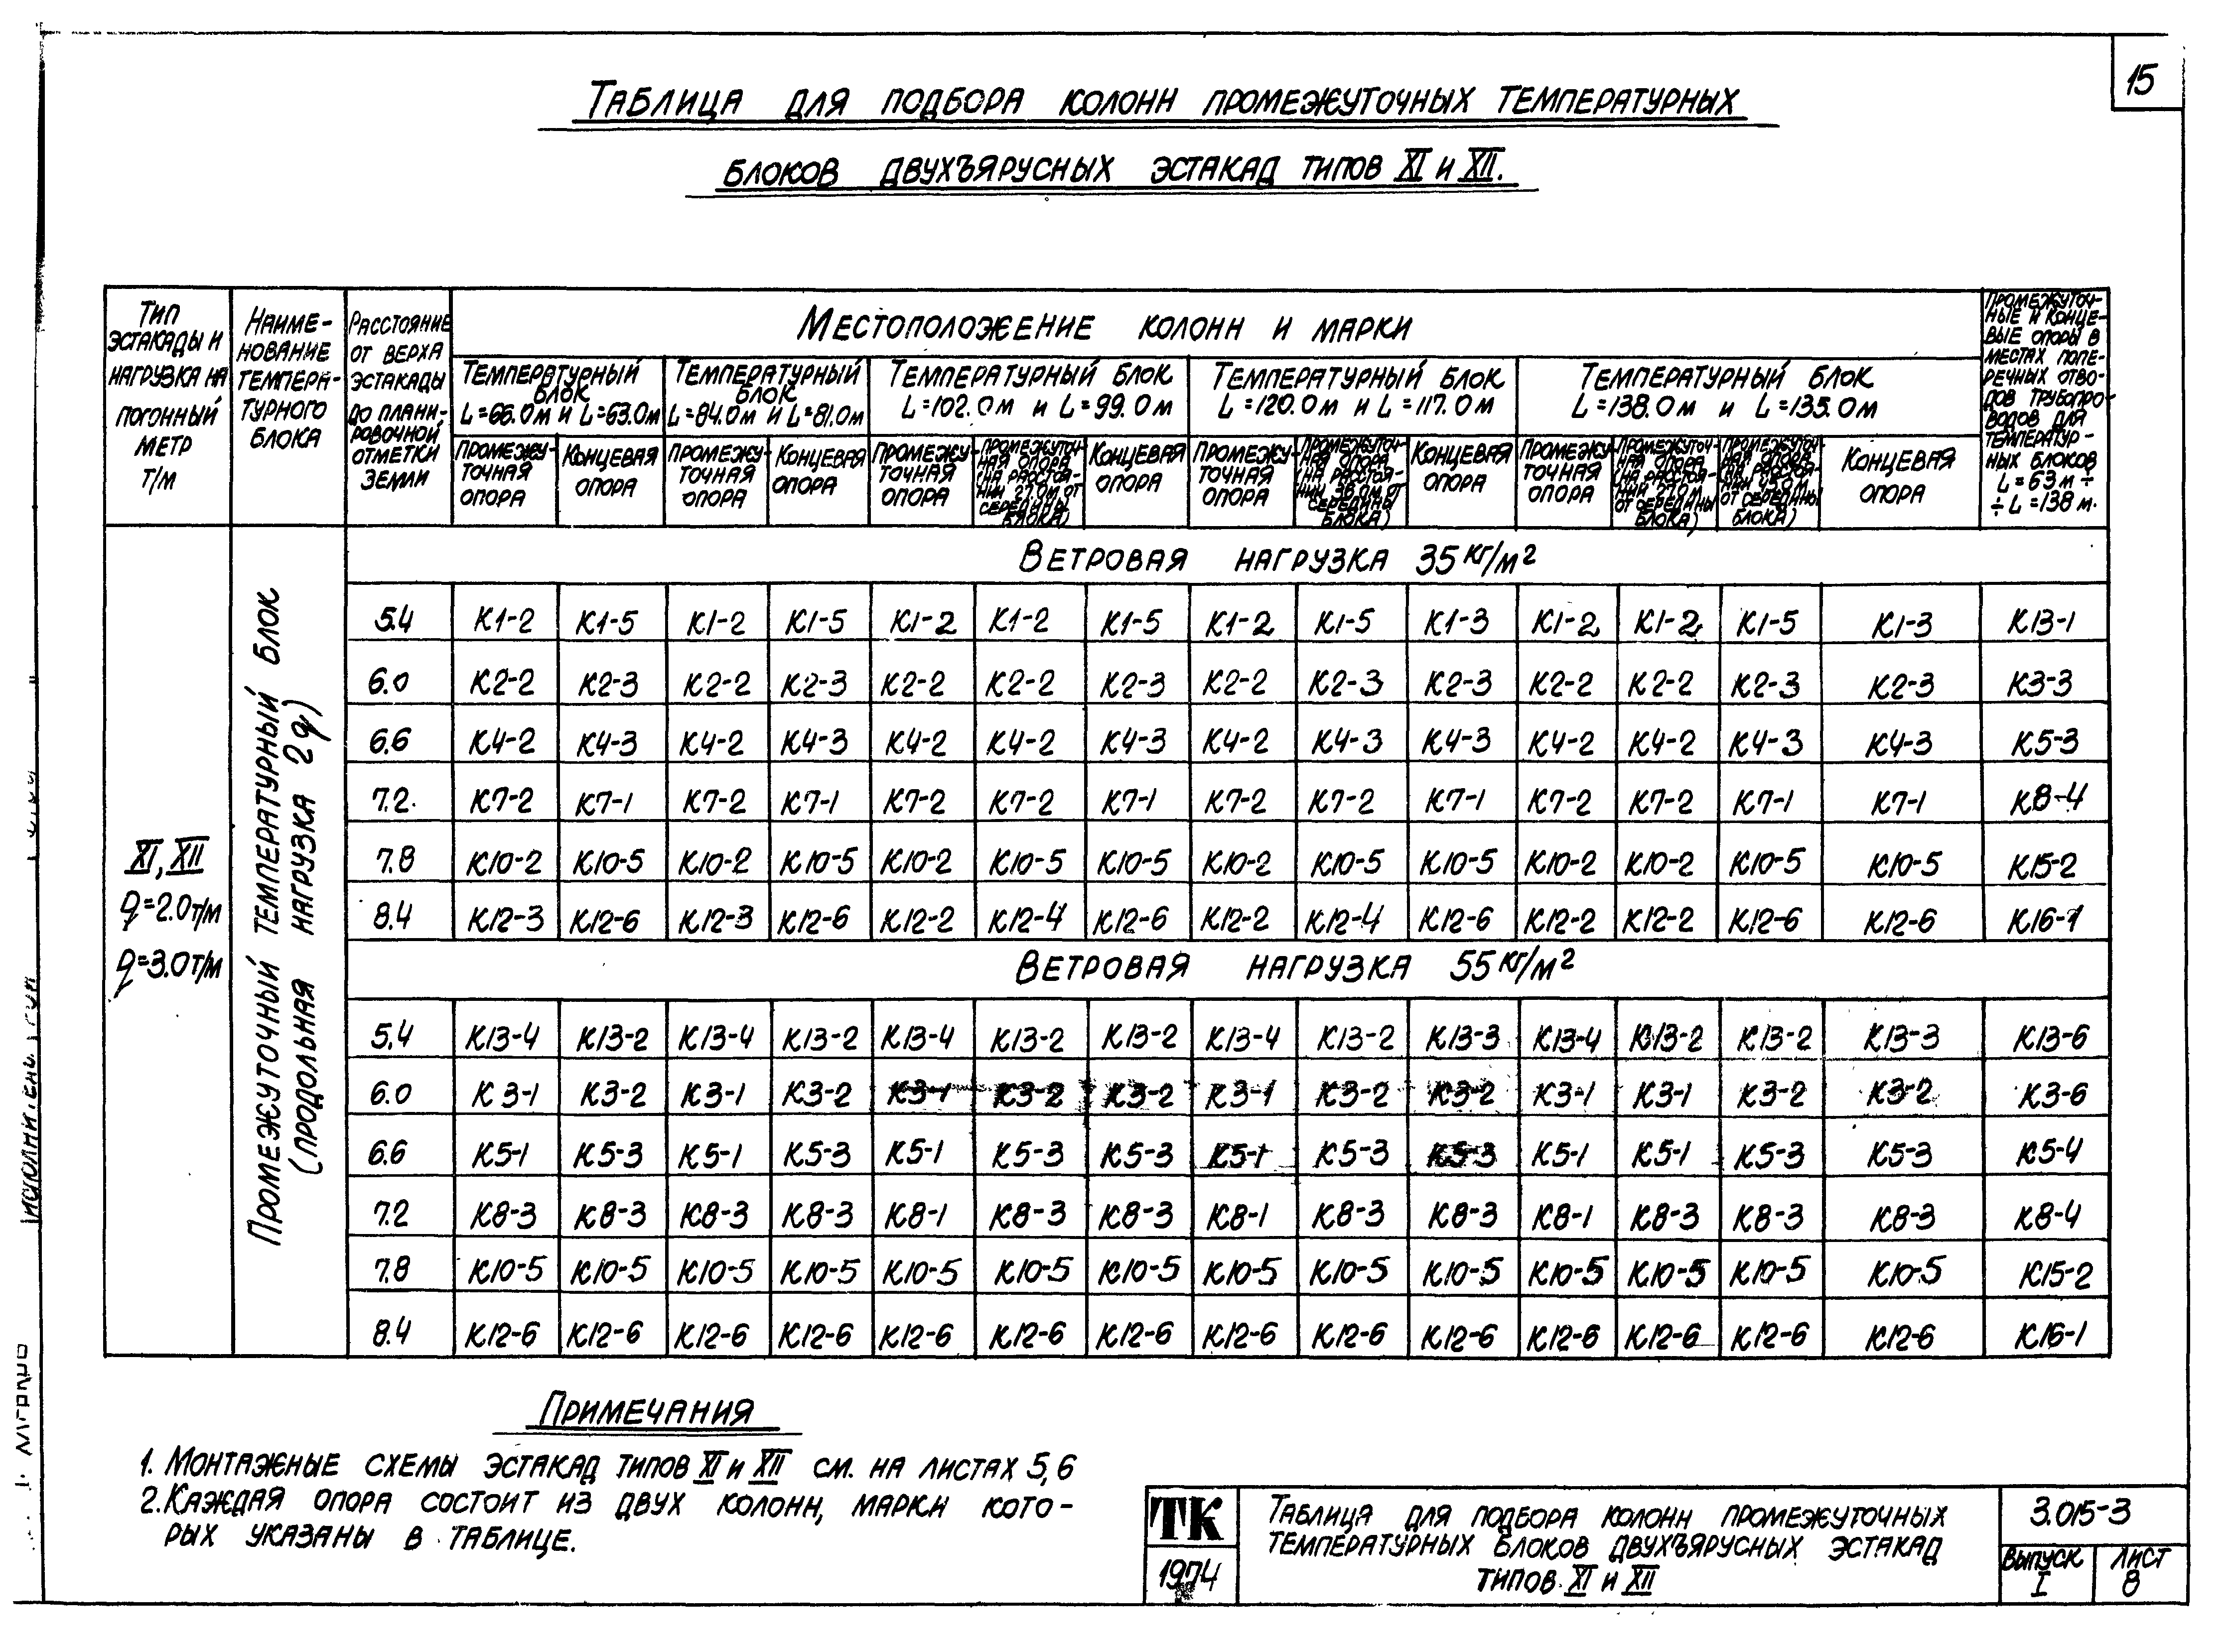 15
Таблица для подбора колонн промежуточных температурных
блоков двухъярусных эстакад типов XI и XII.
Тип эстакады и нагрузка на погонный метр т/м
Наименование температурного блока
Расстояние от верха эстакады до планировочной отметки земли
Местоположение колонн и марки
Промежуточные и концевые опоры в местах поперечных отводов трубопроводов для температурных блоков L=63м ÷ ÷ L=138 м.
Температурный блок L=66.0м и L=63.0м
Температурный блок L=84.0м и L=81.0м
Температурный блок L=102.0м и L=99.0м
Температурный блок L=120.0м и L=117.0м
Температурный блок L=138.0м и L=135.0м
Промежуточная опора
Концевая опора
Промежуточная опора
Концевая опора
Промежуточная опора
Промежуточная опора (на расстоянии 27.0м от середины блока)
Концевая опора
Промежуточная опора
Промежуточная опора (на расстоянии 36.0м от середины блока)
Концевая опора
Промежуточная опора
Промежуточная опора (на расстоянии от середины блока)
Промежуточная опора (на расстоянии 45.0м от середины блока)
Концевая опора
XI, XII
q=2.0т/м
q=3.0т/м
Промежуточный температурный блок
(продольная нагрузка 2q)
Ветровая нагрузка 35 кг/м²
5.4 К1-2 К1-5 К1-2 К1-5 К1-2 К1-2 К1-5 К1-2 К1-5 К1-3 К1-2 К1-2 К1-5 К1-3 К13-1
6.0 К2-2 К2-3 К2-2 К2-3 К2-2 К2-2 К2-3 К2-2 К2-3 К2-3 К2-2 К2-2 К2-3 К2-3 К3-3
6.6 К4-2 К4-3 К4-2 К4-3 К4-2 К4-2 К4-3 К4-2 К4-3 К4-3 К4-2 К4-2 К4-3 К4-3 К5-3
7.2 К7-2 К7-1 К7-2 К7-1 К7-2 К7-2 К7-1 К7-2 К7-2 К7-1 К7-2 К7-2 К7-1 К7-1 К8-4
7.8 К10-2 К10-5 К10-2 К10-5 К10-2 К10-5 К10-5 К10-2 К10-5 К10-5 К10-2 К10-2 К10-5 К10-5 К15-2
8.4 К12-3 К12-6 К12-3 К12-6 К12-2 К12-4 К12-6 К12-2 К12-4 К12-6 К12-2 К12-2 К12-6 К12-6 К16-1
Ветровая нагрузка 55 кг/м²
5.4 К13-4 К13-2 К13-4 К13-2 К13-4 К13-2 К13-2 К13-4 К13-2 К13-3 К13-4 К13-2 К13-2 К13-3 К13-6
6.0 К3-1 К3-2 К3-1 К3-2 К3-1 К3-2 К3-2 К3-1 К3-2 К3-2 К3-1 К3-1 К3-2 К3-2 К3-6
6.6 К5-1 К5-3 К5-1 К5-3 К5-1 К5-3 К5-3 К5-1 К5-3 К5-3 К5-1 К5-1 К5-3 К5-3 К5-4
7.2 К8-3 К8-3 К8-3 К8-3 К8-1 К8-3 К8-3 К8-1 К8-3 К8-3 К8-1 К8-3 К8-3 К8-3 К8-4
7.8 К10-5 К10-5 К10-5 К10-5 К10-5 К10-5 К10-5 К10-5 К10-5 К10-5 К10-5 К10-5 К10-5 К10-5 К15-2
8.4 К12-6 К12-6 К12-6 К12-6 К12-6 К12-6 К12-6 К12-6 К12-6 К12-6 К12-6 К12-6 К12-6 К12-6 К16-1
Примечания
1. Монтажные схемы эстакад типов XI и XII см. на листах 5,6
2. Каждая опора состоит из двух колонн, марки кото-
рых указаны в таблице.
ТК
1974
Таблица для подбора колонн промежуточных
температурных блоков двухъярусных эстакад
типов XI и XII
3.015-3
Выпуск I
Лист 8